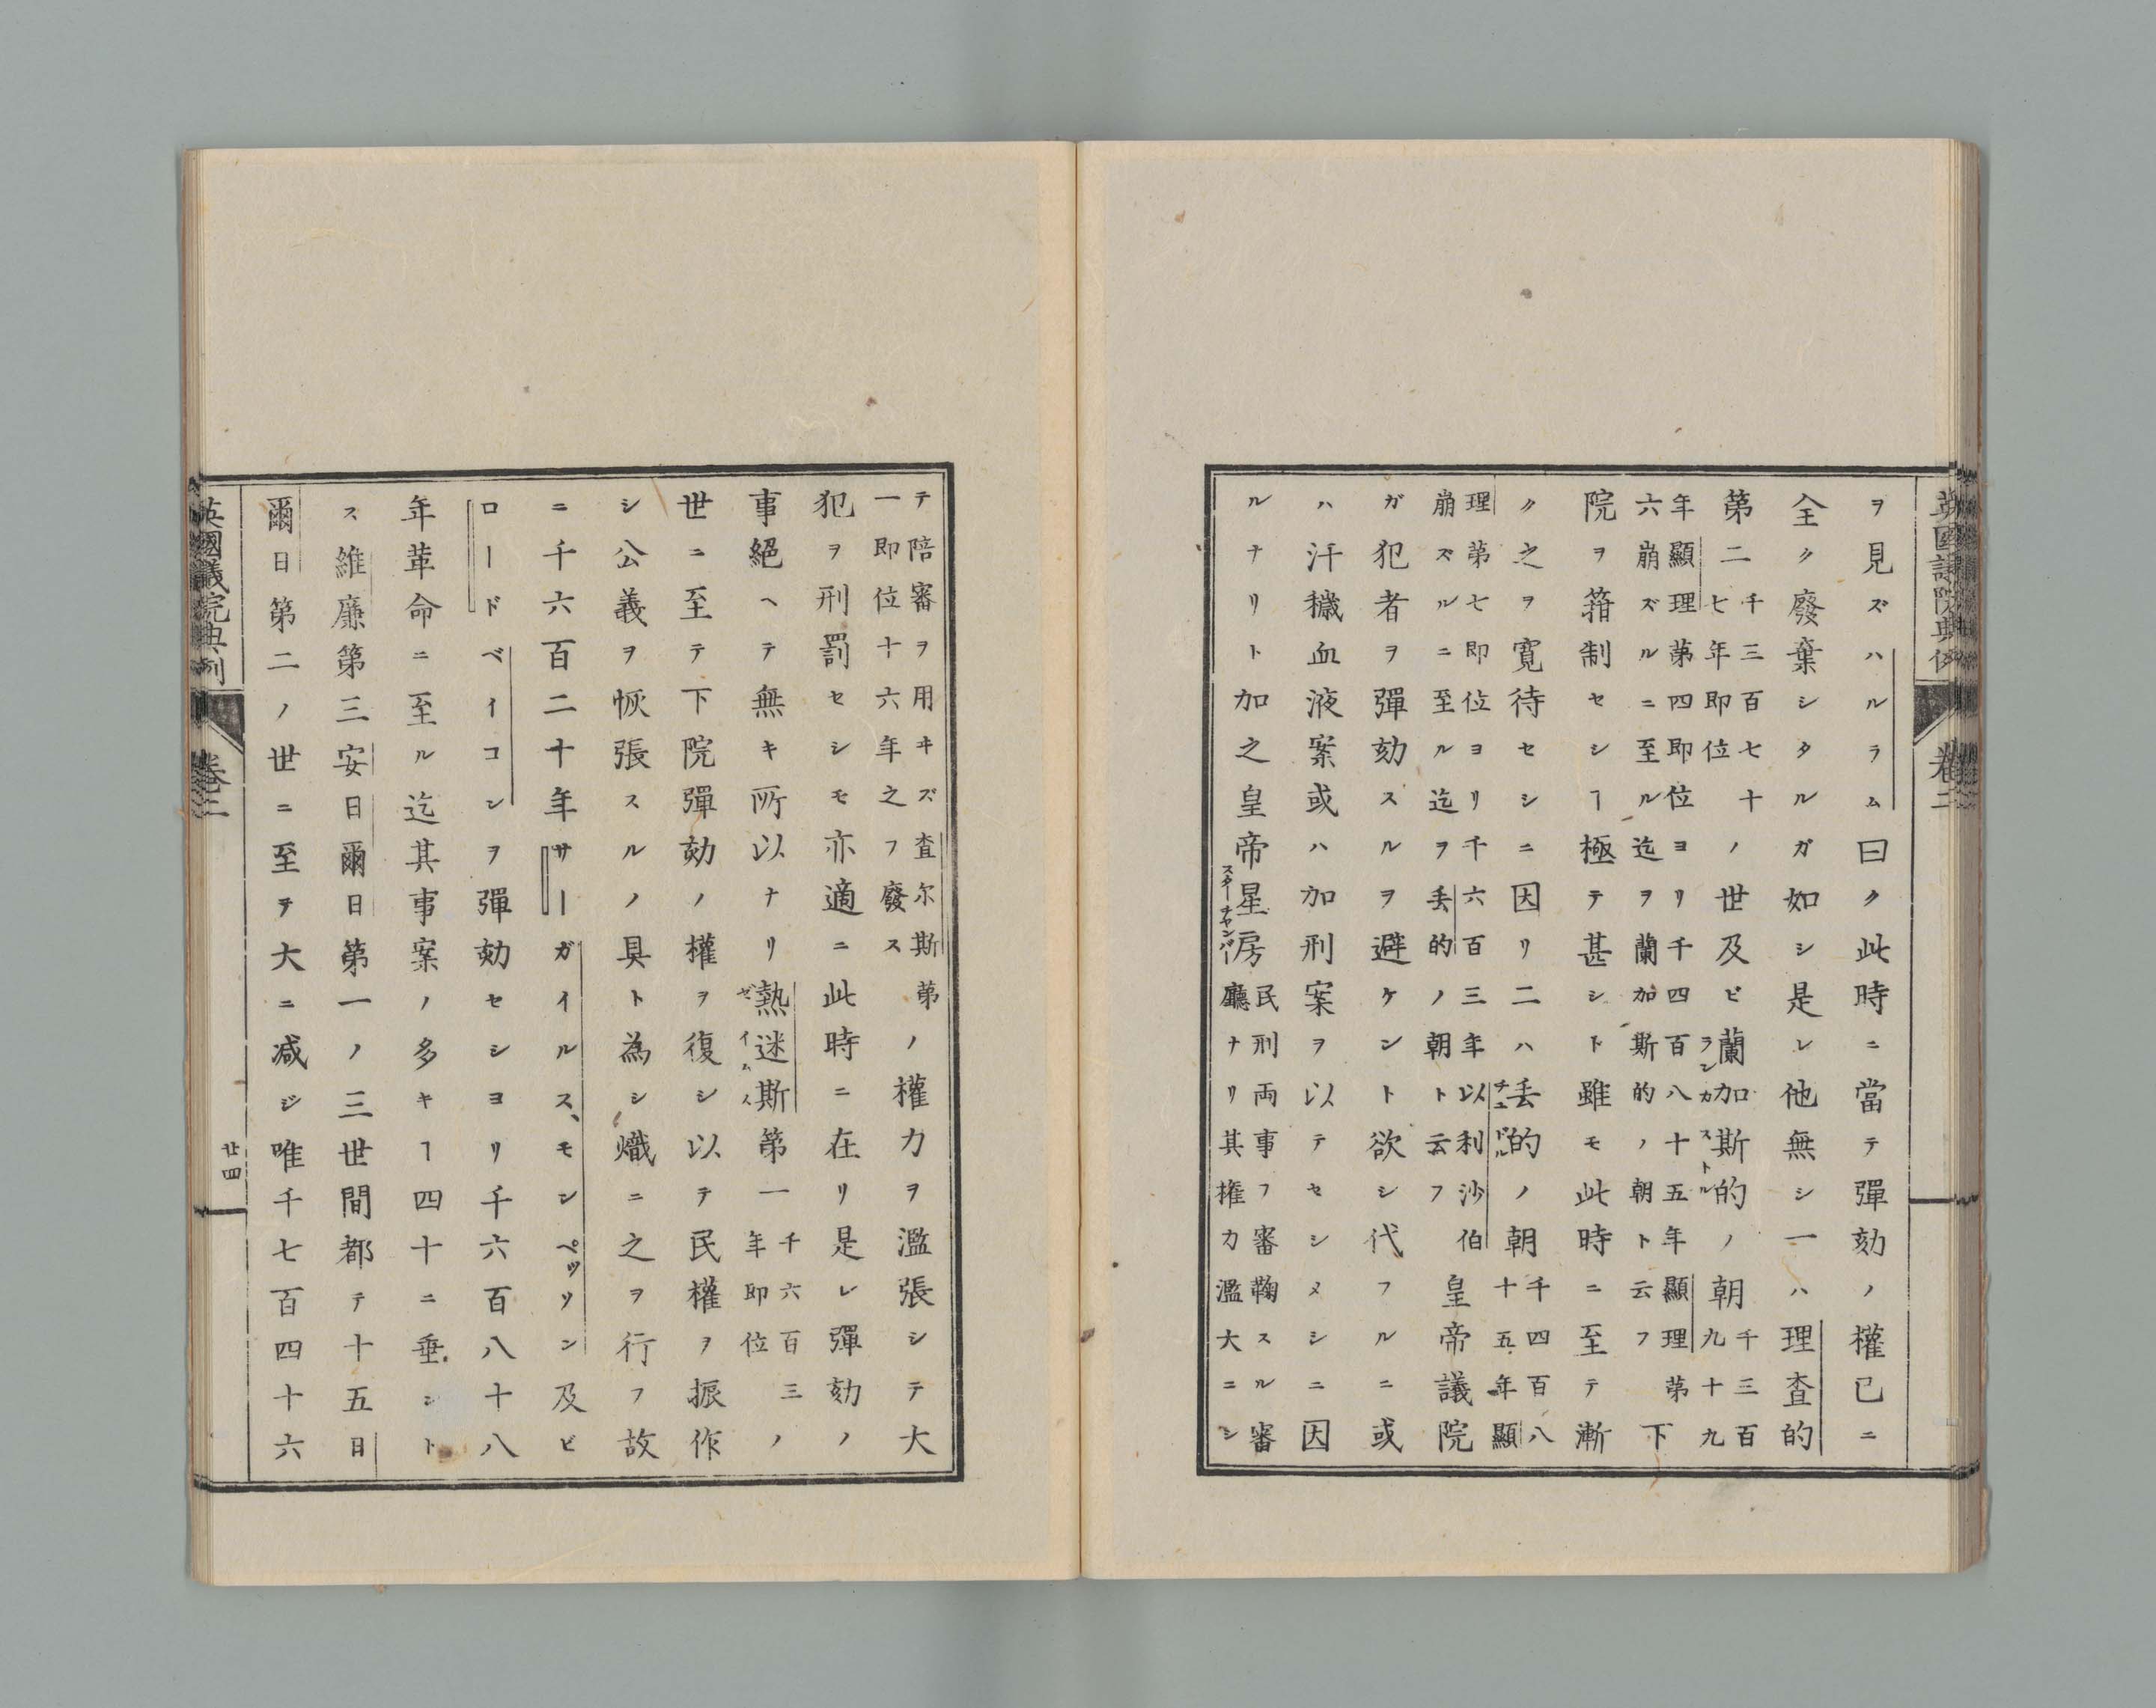 英國議院典例
卷二
ヲ見ズハルラム曰ク此時ニ當テ彈劾ノ權已ニ
全ク廢棄シタルガ如シ是レ他無シ一ハ理査的
第二千三百七十七年即位ノ世及ビ蘭加斯的ランカストルノ朝千三百九十九
年顯理第四即位ヨリ千四百八十五年顯理第六崩ズルニ至ル迄ヲ蘭加斯的ノ朝ト云フ下
院ヲ箝制セシヿ極テ甚シト雖モ此時ニ至テ漸
ク之ヲ寛待セシニ因リ二ハ丢的チユドルノ朝千四百八十五年顯
理第七即位ヨリ千六百三年以利沙伯崩ズルニ至ル迄ヲ丢的ノ朝ト云フ皇帝議院
ガ犯者ヲ彈劾スルヲ避ケント欲シ代フルニ或
ハ汗穢血液案或ハ加刑案ヲ以テセシメシニ因
ルナリト加之皇帝星房スターチャンバー民刑両事フ審鞠スル審廳ナリ其権力濫大ニシ
テ陪審ヲ用ヰズ査尓斯第一即位十六年之フ廢スノ權力ヲ濫張シテ大
犯ヲ刑罰セシモ亦適ニ此時ニ在リ是レ彈劾ノ
事絕ヘテ無キ所以ナリ熱迷斯ゼイムス第一千六百三年即位ノ
世ニ至テ下院彈劾ノ權ヲ復シ以テ民權ヲ振作
シ公義ヲ恢張スルノ具ト為シ熾ニ之ヲ行フ故
ニ千六百二十年サーガイルス、モンペッソン及ビ
ロードベイコンヲ彈劾セシヨリ千六百八十八
年革命ニ至ル迄其事案ノ多キヿ四十ニ垂ントス
維廉第三安日爾日第一ノ三世間都テ十五日
爾日第二ノ世ニ至テ大ニ減ジ唯千七百四十六
英國議院典例
卷二
廿四